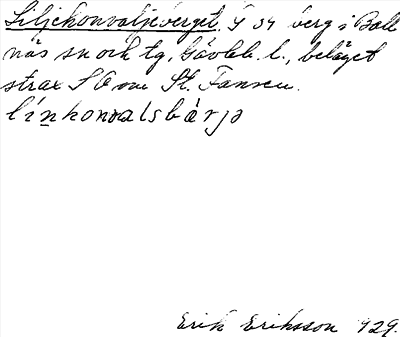 Liljekonvaljeberget. G 34 berg i Boll
näs sn och tg, Gävleb. l., beläget
strax SO om St. Fansen.
línkonvalsbárjə
Erik Eriksson 1929.